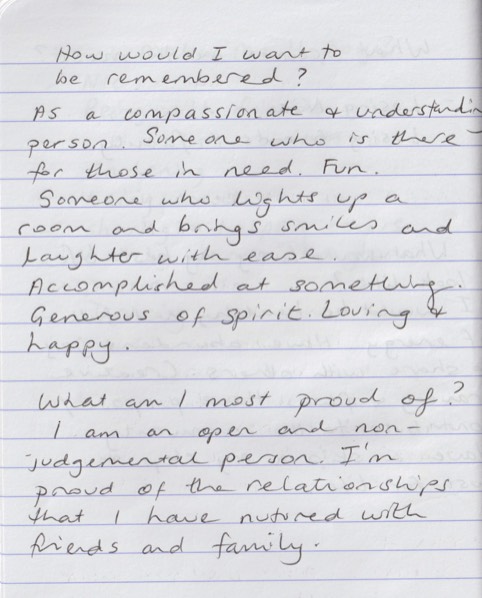 How would I want to
be remembered?
As a compassionate & understandin
person. Someone who is there
for those in need. Fun.
Someone who lights up a
room and brings smiles and
laughter with ease.
Accomplished at something.
Generous of spirit. Loving &
happy.
What am I most proud of?
I am an open and non-
judgemental person. I'm
proud of the relationships
that I have nutured with
friends and family.